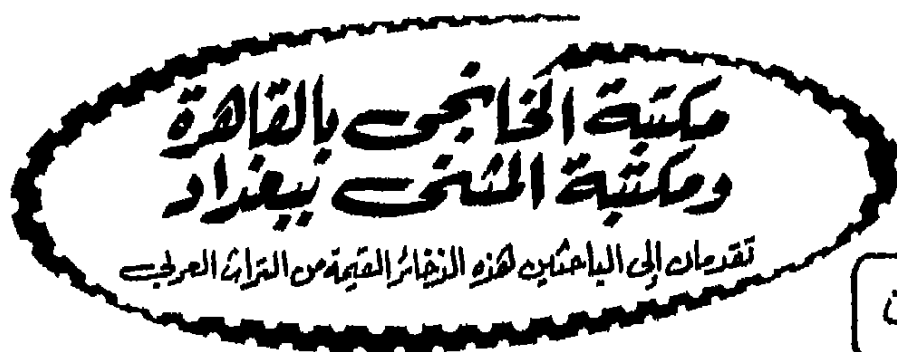 مكتبة الخانجى بالقاهرة
ومكتبة المثنى ببغداد
تقدمان إلى الباحثين هذه الذخائر القيمة من التراث العربى